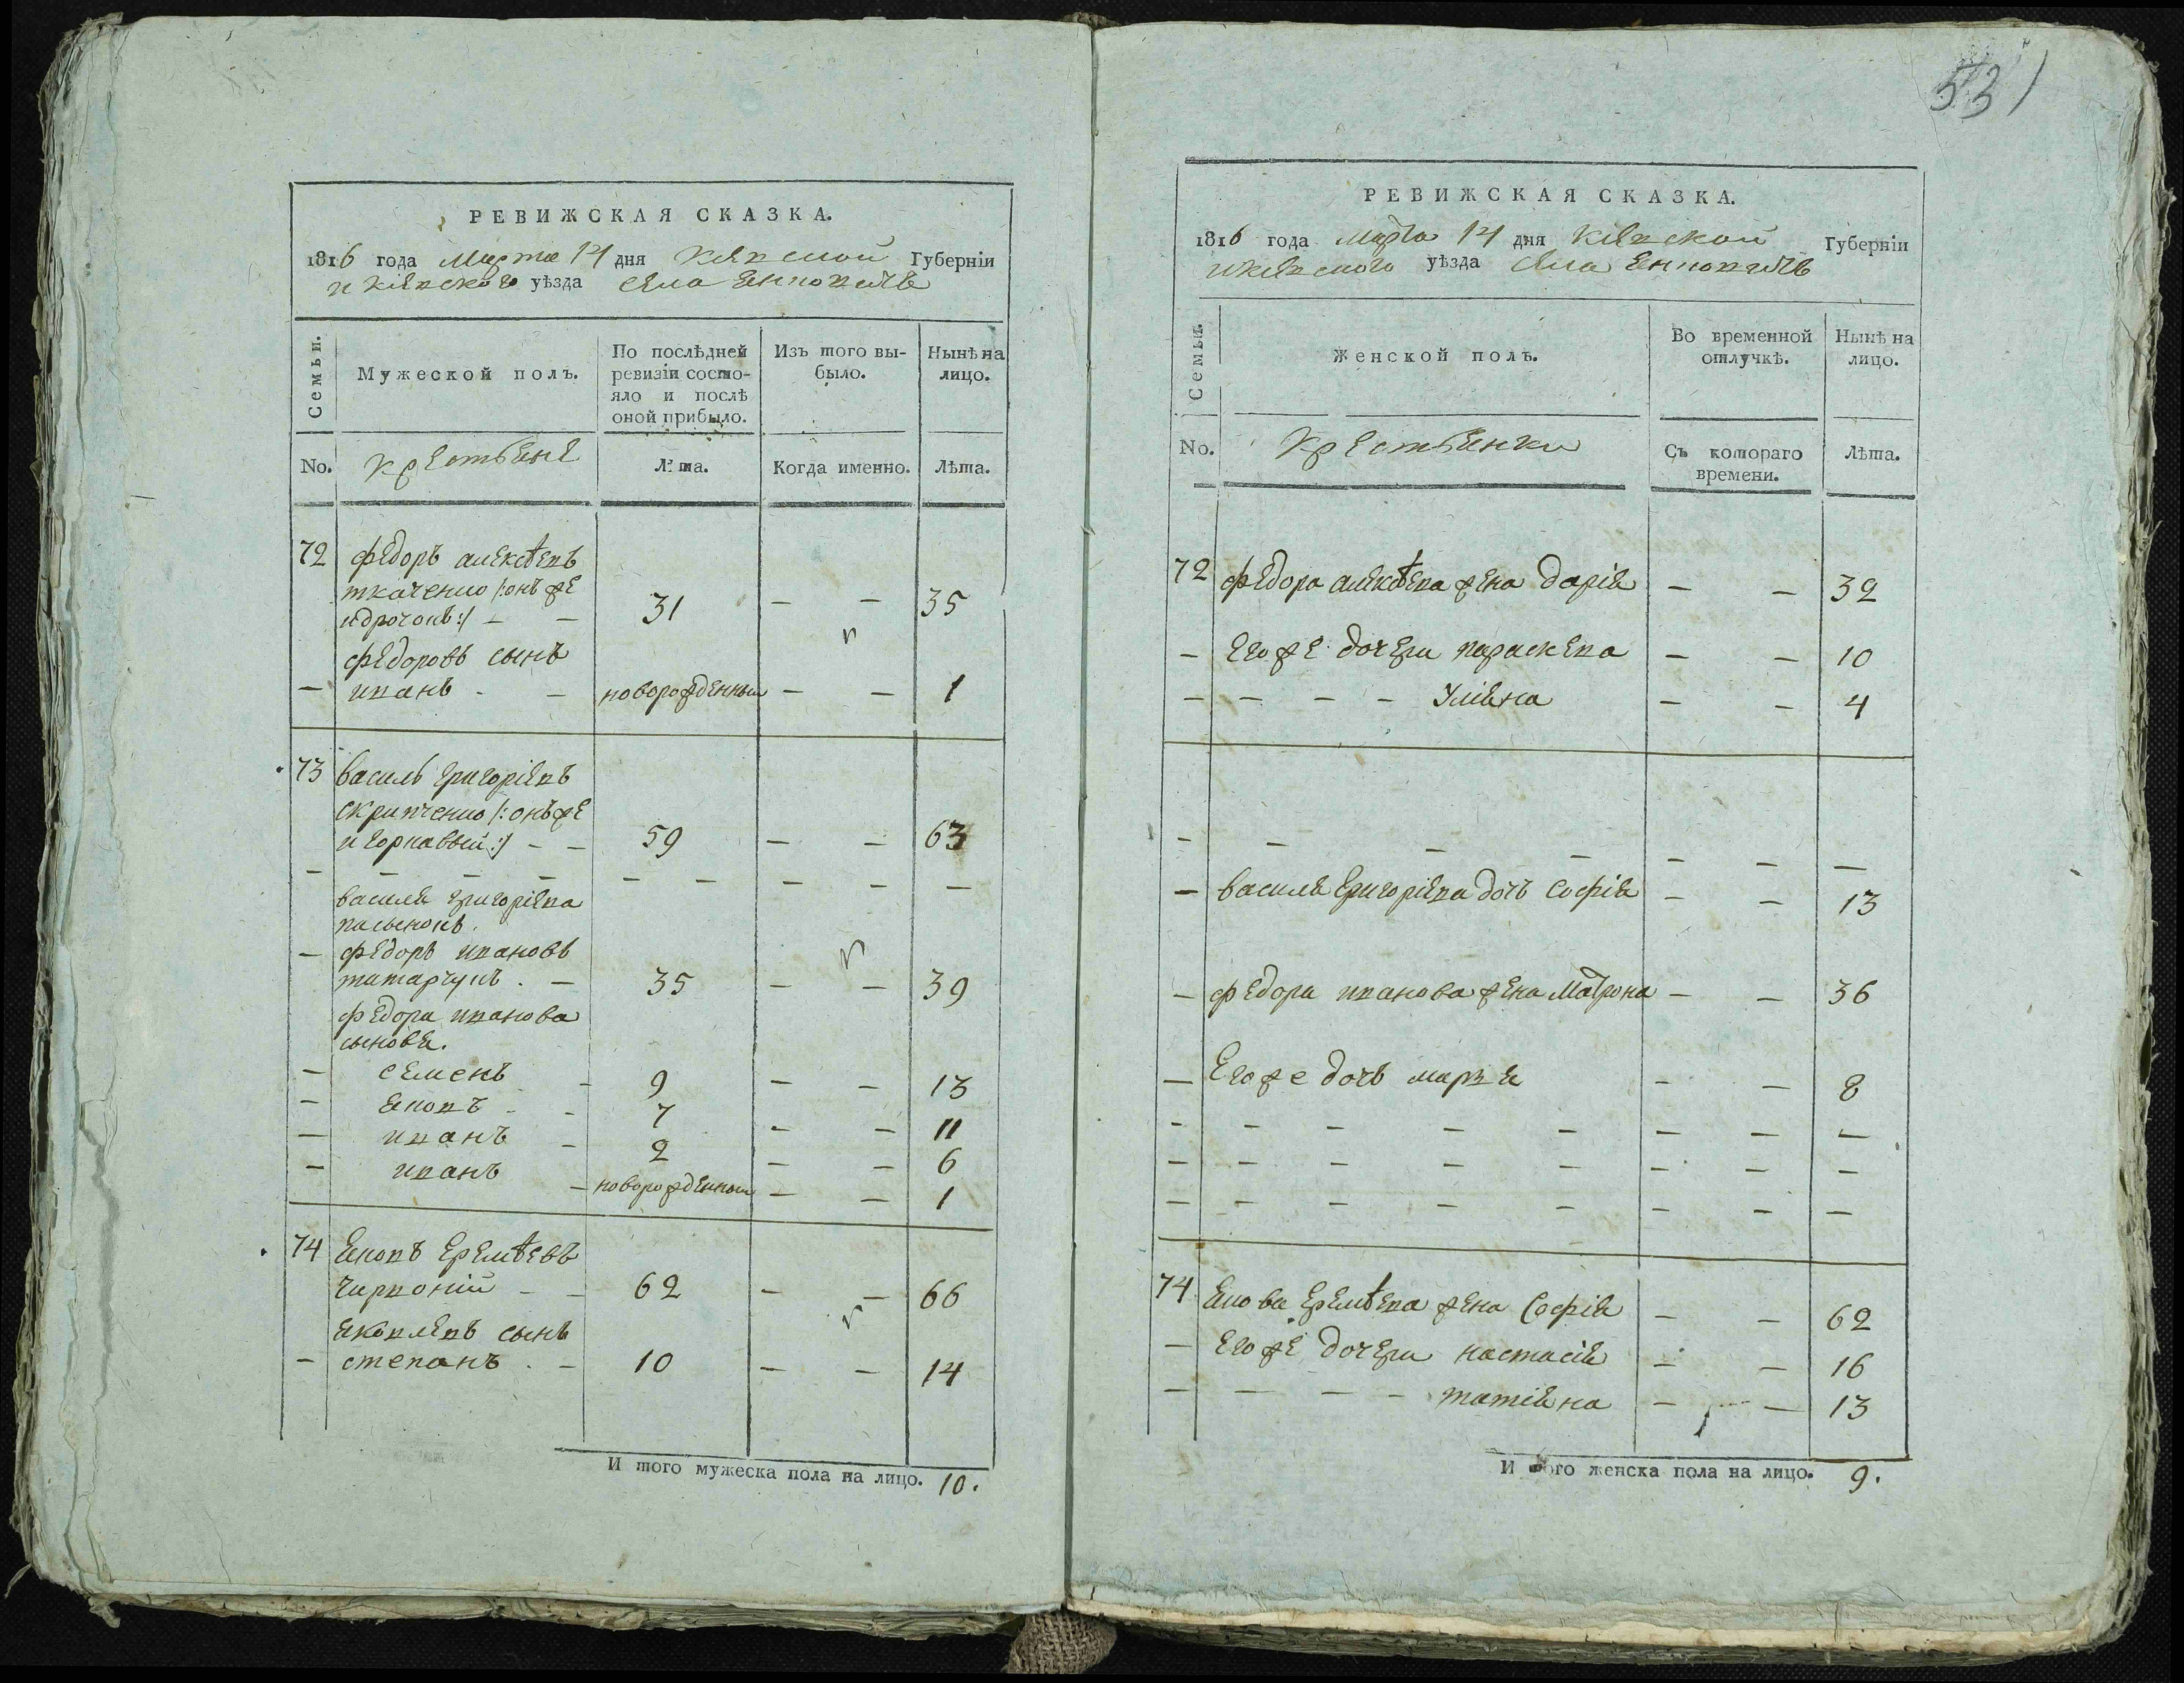 РЕВИЖСКАЯ СКАЗКА.
1816 года Марта 14 дня Кіевской Губерніи
и Кіевского уѣзда села Янковичъ
Семьи.
Мужеской полъ.
По послѣдней ревизіи состояло и послѣ оной прибыло.
Изъ того выбыло.
Нынѣ на лицо.
No.
крестьяне
Лѣта.
Когда именно.
Лѣта.
72 федоръ алексѣевъ
ткаченко /:онъ же
идрочокъ:/ – – 31 – – 35
федоровъ сынъ
– иванъ - – новорожденный – – 1
73 василь григоріевъ
скрипченко /:онъ же
и горкавый:/ – – 59 – – 63
– – – – – – – – –
василя григоріева
пасынокъ.
– федоръ ивановъ
татарчукъ . – 35 – – 39
федора иванова
сыновя.
– семенъ - 9 – – 13
– яковъ - - 7 – – 11
– иванъ – 2 – – 6
– иванъ – новорожденный – – 1
74 яковъ еремѣевъ
чирконій – – 62 – – 66
яковлевъ сынъ
– степанъ . – 10 – – 14
И того мужеска пола на лицо. 10.
531
РЕВИЖСКАЯ СКАЗКА.
1816 года марта 14 дня Кіевской Губерніи
и Кіевского уѣзда села Янковичъ
Семьи.
Женской полъ.
Во временной отлучкѣ.
Нынѣ на лицо.
No.
Крестьянки
Съ котораго времени.
Лѣта.
72 федора алексѣева жена дарія – – 32
– его же дочери параскева – – 10
– – – – уліяна – – 4
- – – – – – –
– василя григоріева дочь софія – – 13
– федора иванова жена матрона – – 36
– Его же дочь марья – – 8
- – – – – – – –
– – – – – – – –
– – – – – – – –
74 якова еремѣева жена Софія – – 62
– его же дочери настасія – – 16
– – – – татіяна – – 13
И того женска пола на лицо. 9.